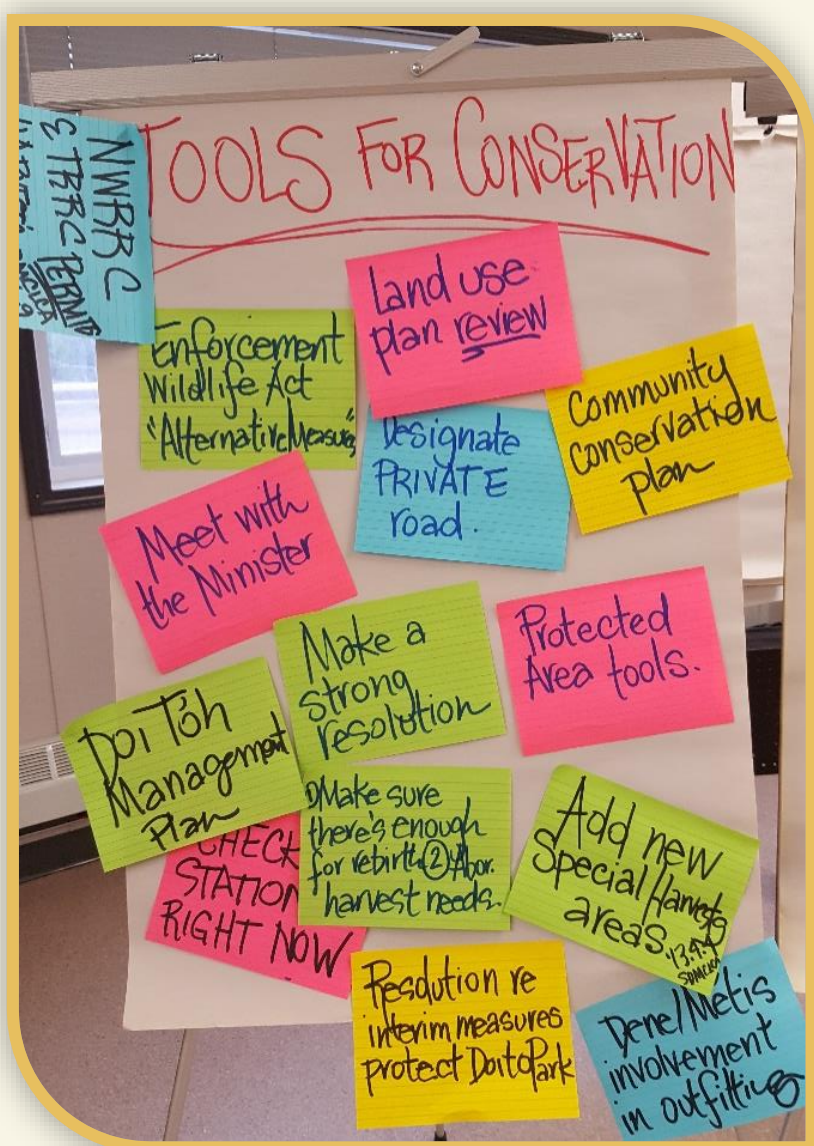 TOOLS FOR CONSERVATION
NWRRC
& TRRC PERMITS
Land use
plan review
Enforcement
Wildlife Act
"Alternative Measures"
Designate
PRIVATE
road.
Community
conservation
plan
Meet with
the Minister
Make a
strong
resolution
Protected
Area tools.
Doi Tóh
Management
Plan
CHECK
STATION
RIGHT NOW
①Make sure
there's enough
for rebirth ② Abor.
harvest needs.
Add new
Special Harvestg
areas. 13.9.9
SDMCLCA
Resolution re
interim measures
protect Doi to Park
Dene/Métis
involvement
in outfitting